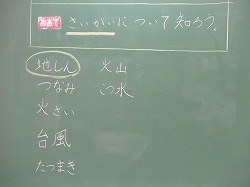 めあて さいがいについて知ろう。
地しん
つなみ
火さい
台風
たつまき
火山
こう水